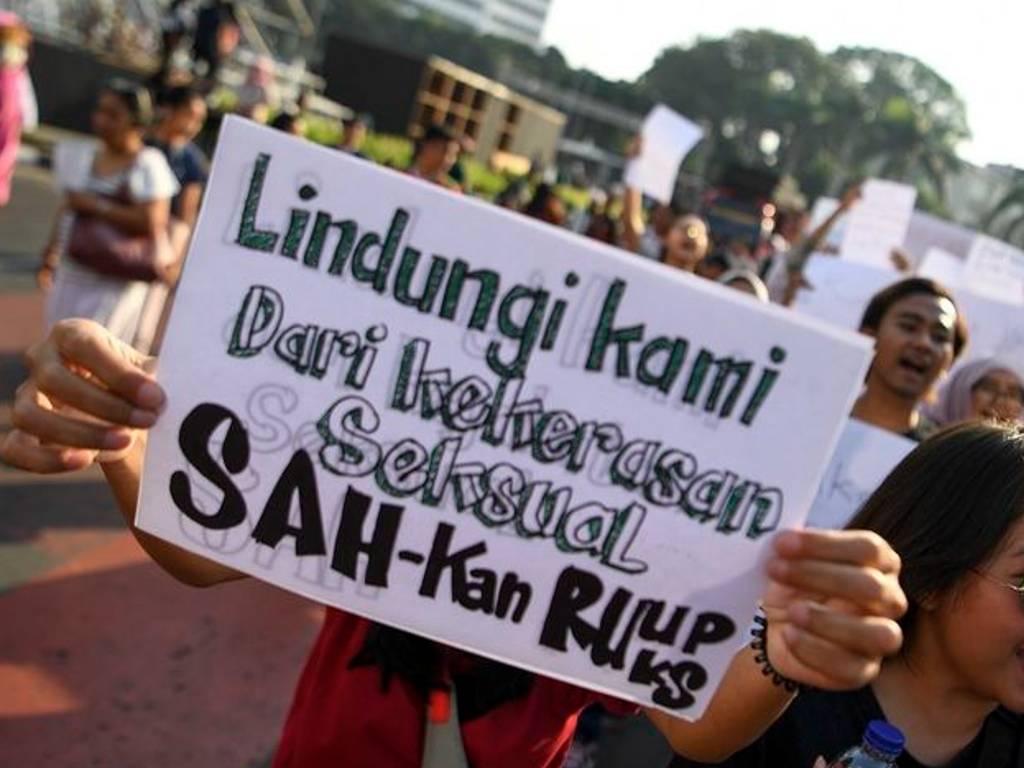 Lindungi kami
Dari kekerasan
Seksual
SAH-Kan RUU PKS